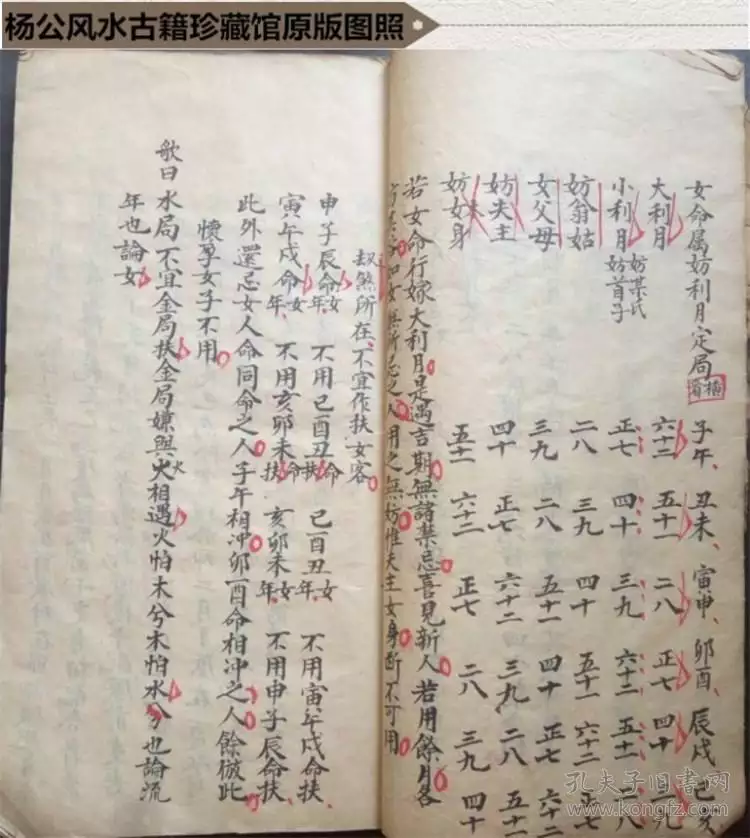 杨公风水古籍珍藏馆原版图照
女命属妨利月定局 横看 子午 丑未 寅申 卯酉 辰戌 巳亥
大利月 六十二 五十一 二八 正七 四十 三九
小利月 妨某氏 妨首子 正七 四十 三九 六十二 五十一 二八
妨翁姑 二八 三九 四十 五十一 六十二 正七
女父母 三九 二八 五十一 四十 正七 六十二
妨夫主 四十 正七 六十二 三九 二八 五十一
妨女身 五十一 六十二 正七 二八 三九 四十
若女命行嫁大利月是遇吉期無諸禁忌喜見新人若用餘月各
之人用之無妨惟夫主女身断不可用
煞所在不宜作扶女客
申子辰命女年 不用巳酉丑命扶 巳酉丑女年 不用寅午戌命扶
寅午戌命女年 不用亥卯未命扶 亥卯未女年 不用申子辰命扶
此外還忌女人命同命之人子午相冲卯酉命相冲之人餘倣此
懷孕女子不用
歌曰水局不宜金局扶金局嫌與火相遇火怕木兮木怕水分也論流
年也論女
孔夫子旧书网
www.kongfz.com